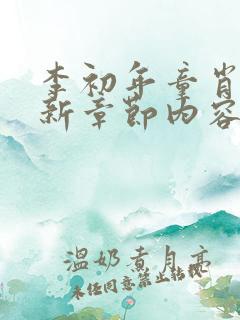 李初年童肖
新章节内容
温奶煮月亮
未经同意禁止转载